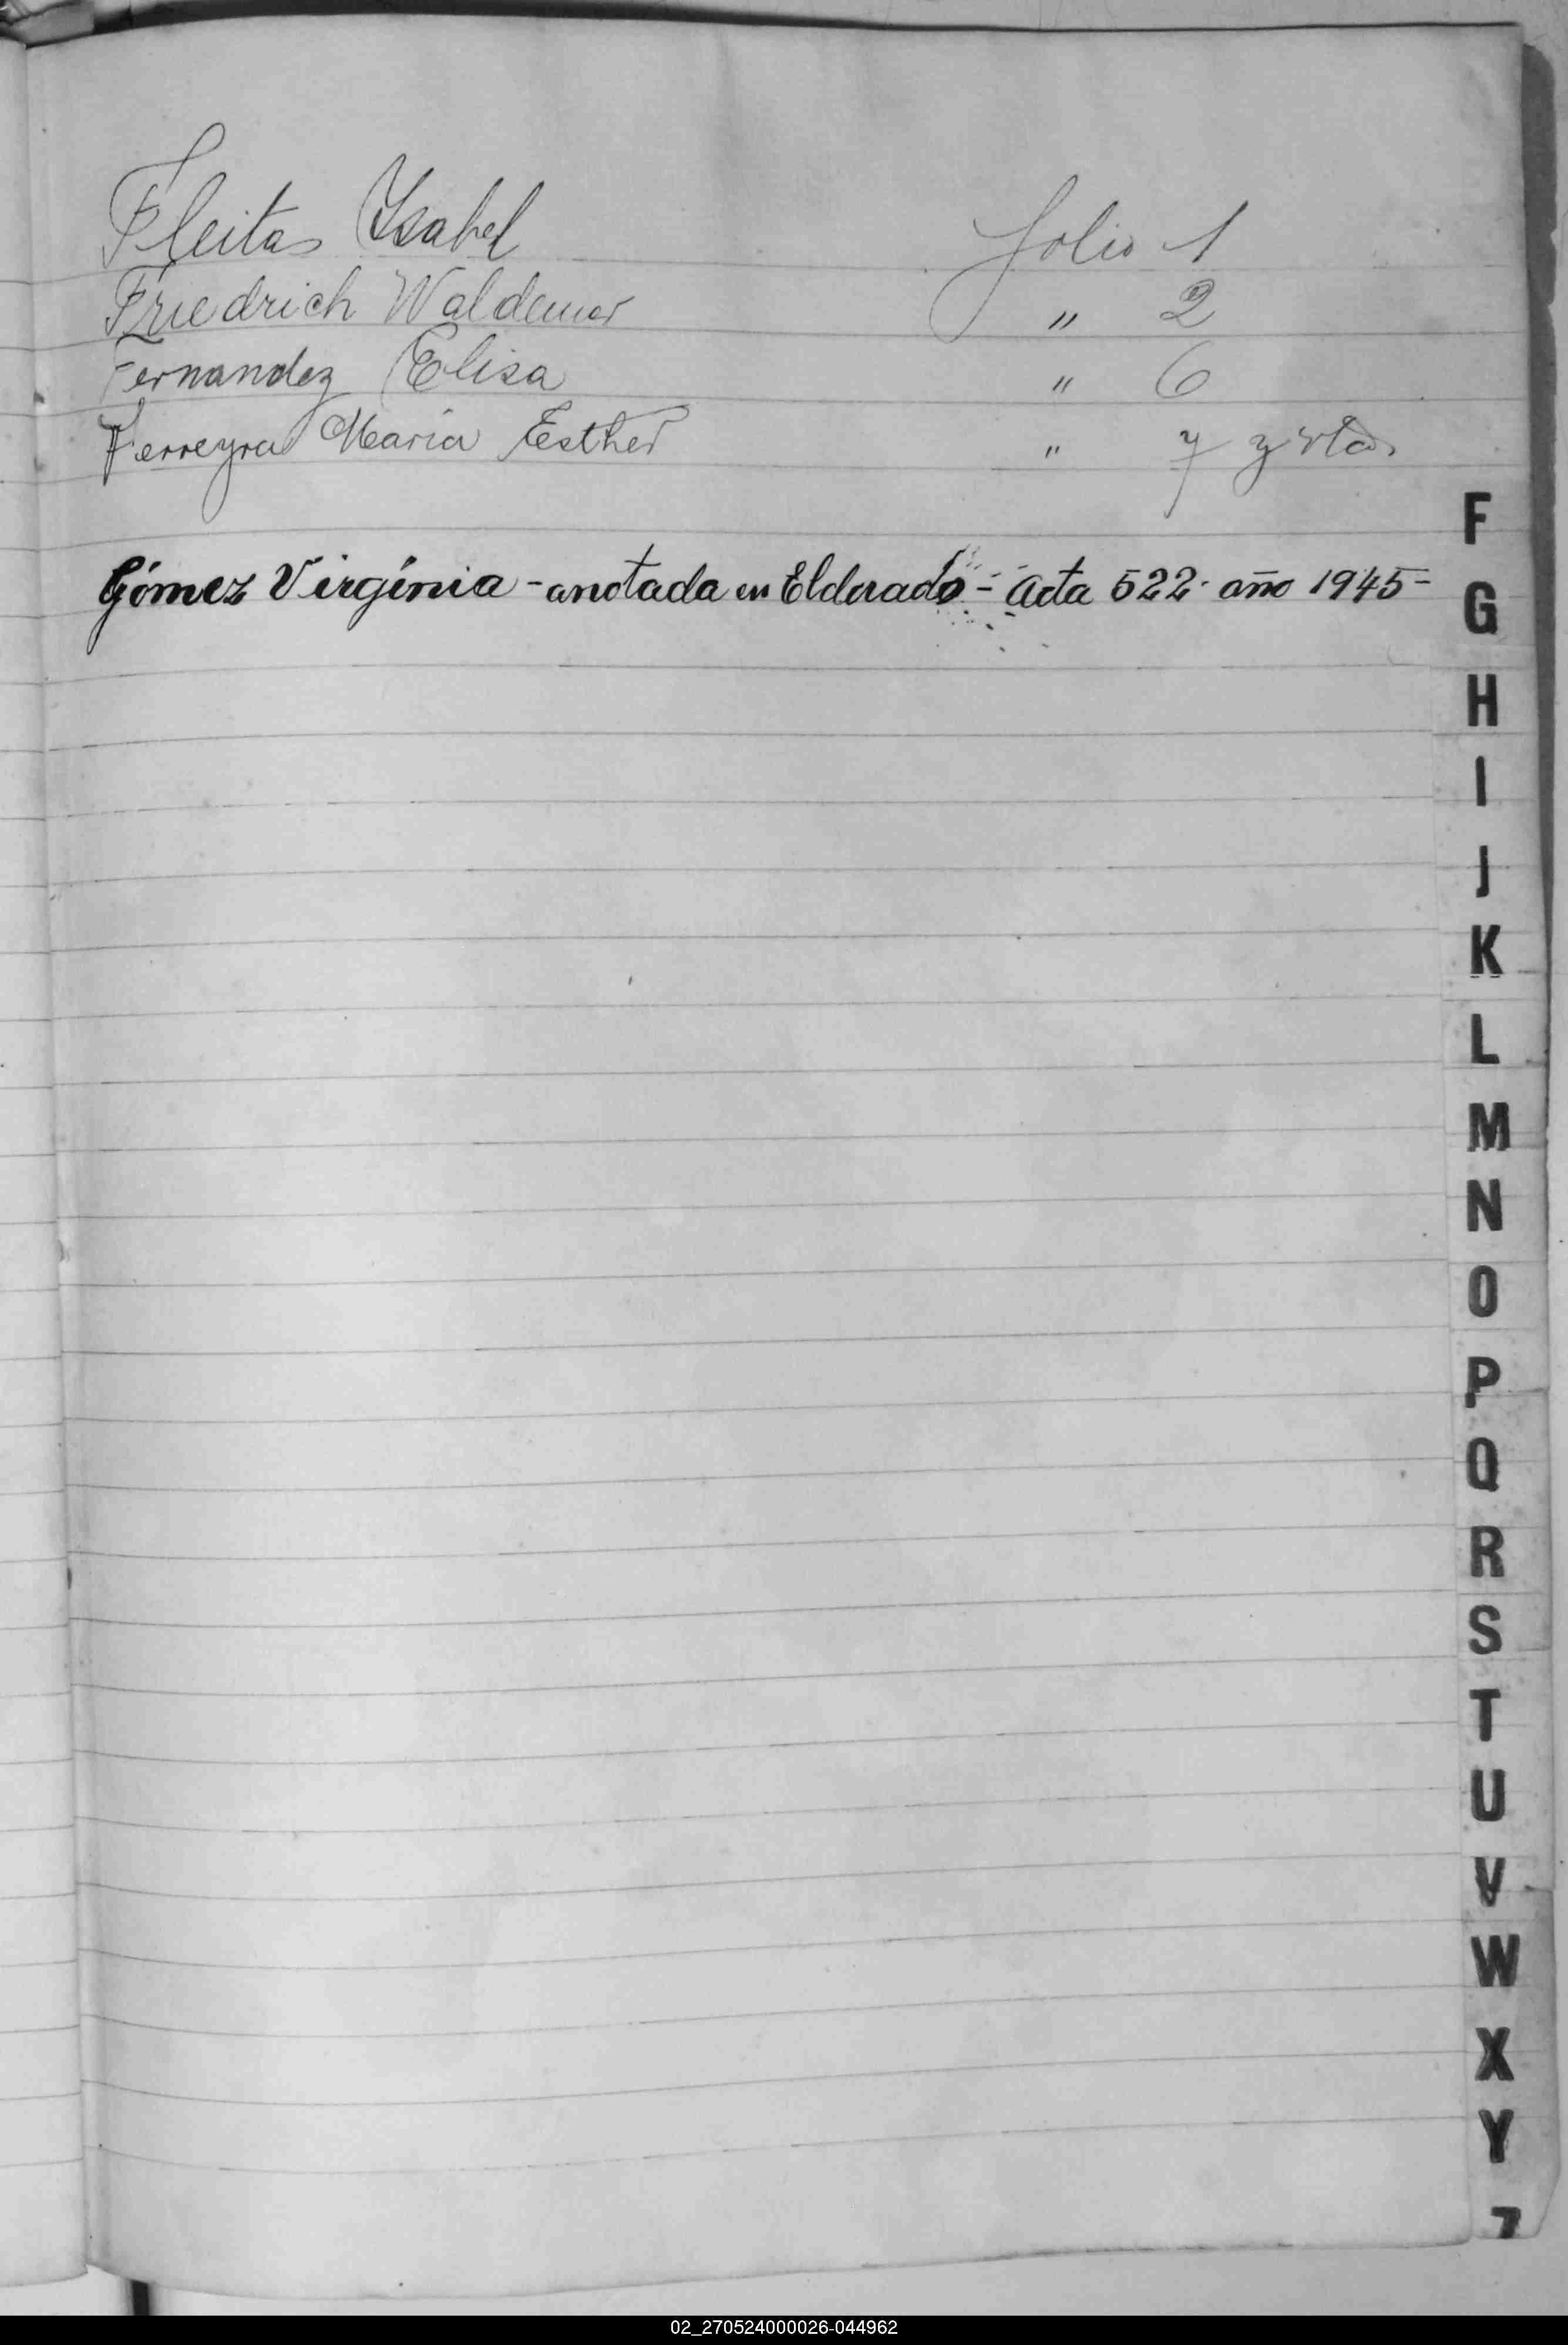 Fleitas Isabel folio 1
Friedrich Waldemar " 2
Fernandez Elisa " 6
Ferreyra Maria Esther " 7 y vta.
Gómez Virginia - anotada en Eldorado - Acta 522 - año 1945 -
F
G
H
I
J
K
L
M
N
O
P
Q
R
S
T
U
V
W
X
Y
Z
02_270524000026-044962